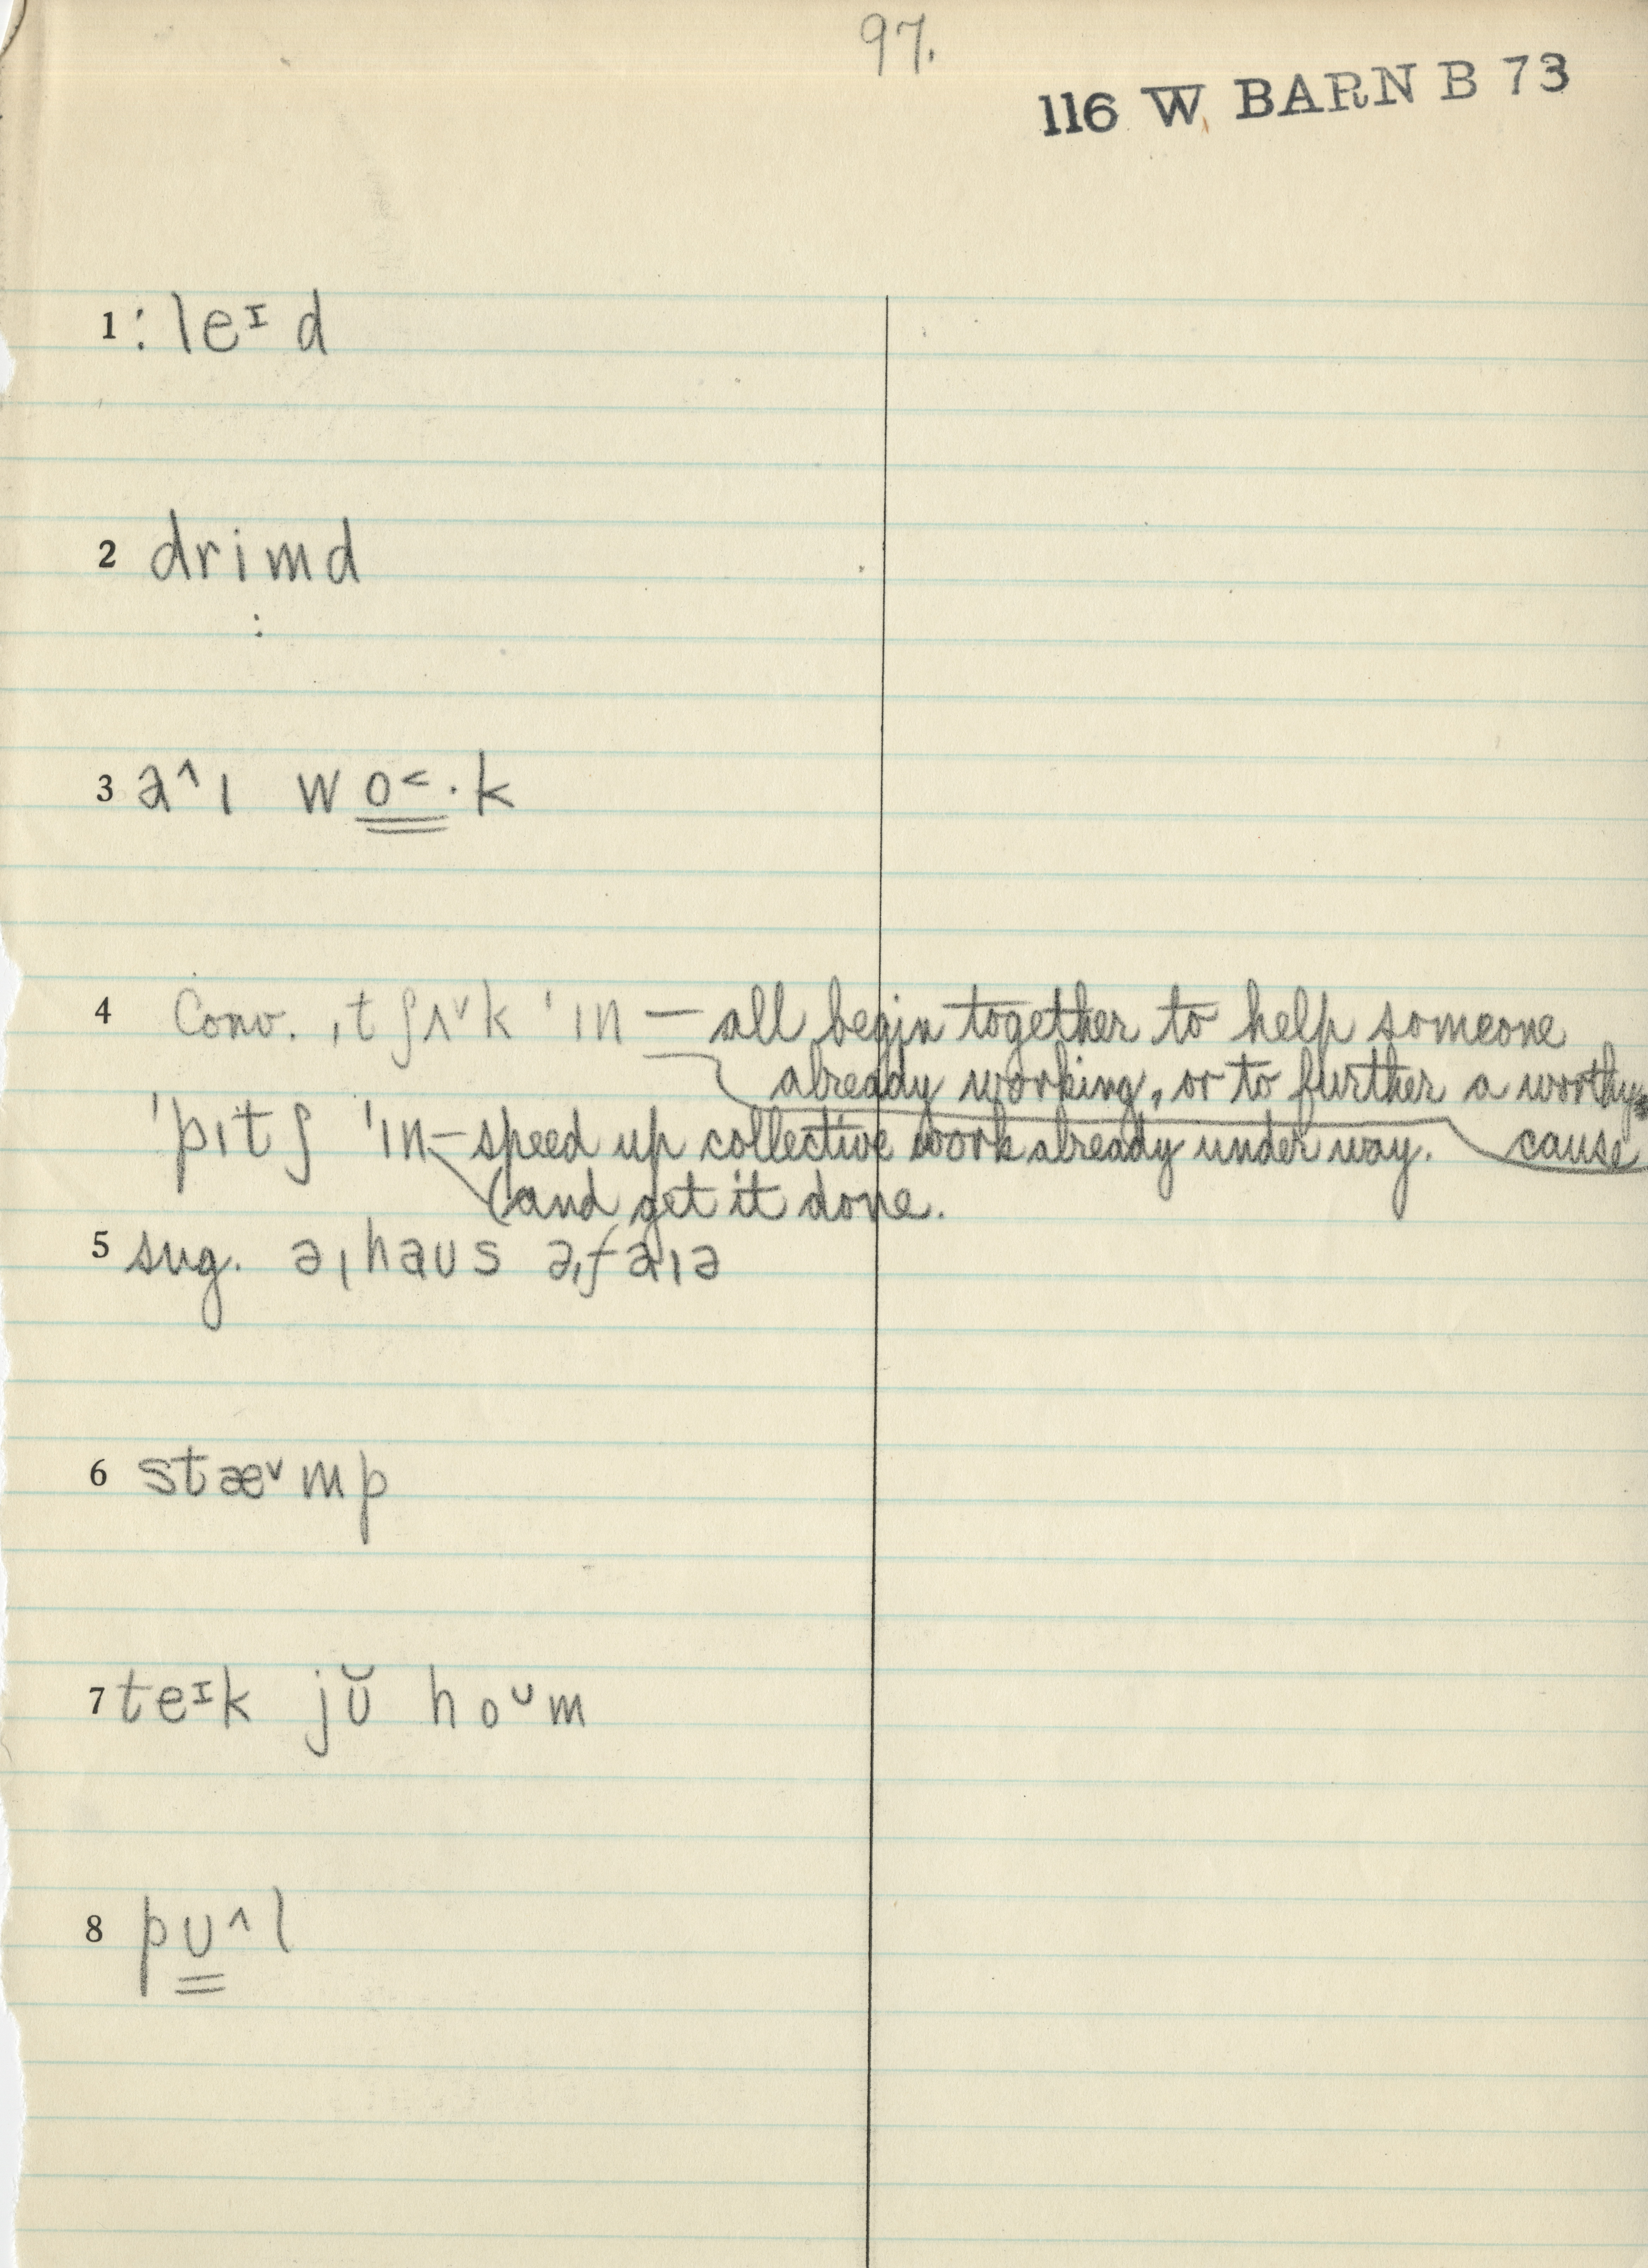 97.
116 W BARN B 73
1 : leɪ d
2 drimd
:
3 a^ı wo˂·k
4 Conv. ˌtʃʌ˅k ˈɪn — all begin together to help someone
already working, or to further a worthy
ˈpɪtʃ ˈɪn — speed up collective work already under way. cause
(and get it done.
5 sug. əˌhaus əˌfaɪə
6 stæ˅mp
7 teɪk jŭ hoᴜm
8 pᴜ^l